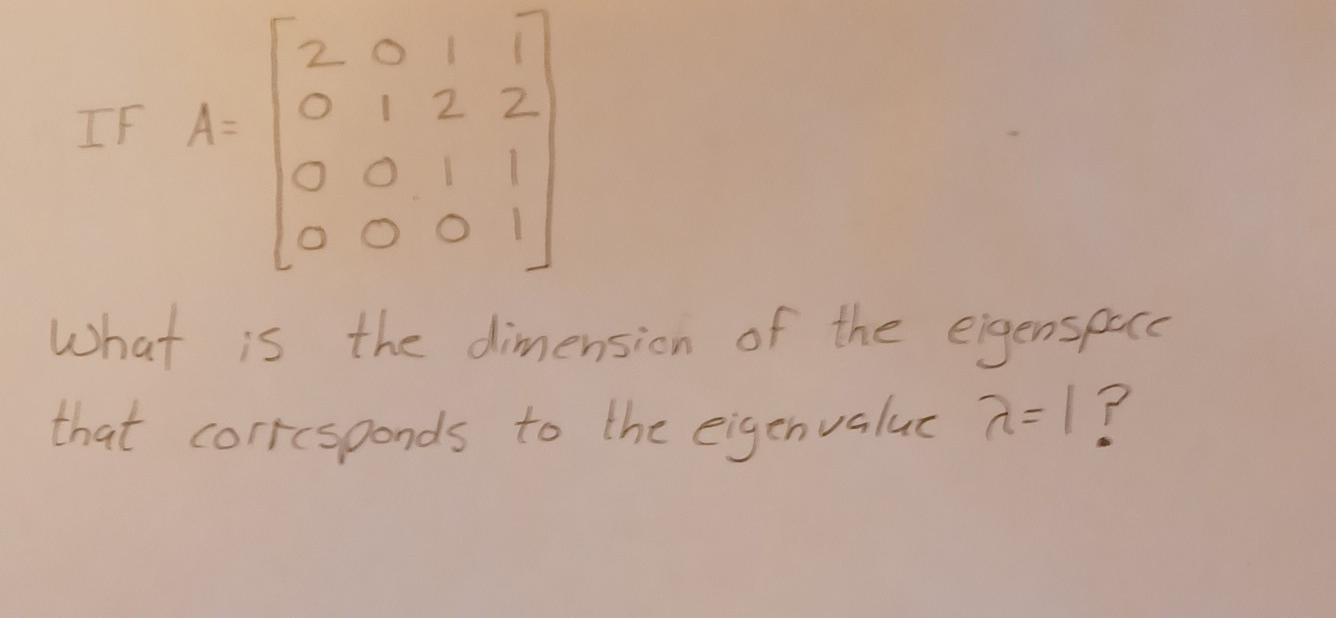 2 0 1 1
IF A= 0 1 2 2
0 0 1 1
0 0 0 1
What is the dimension of the eigenspace
that corresponds to the eigenvalue λ=1?